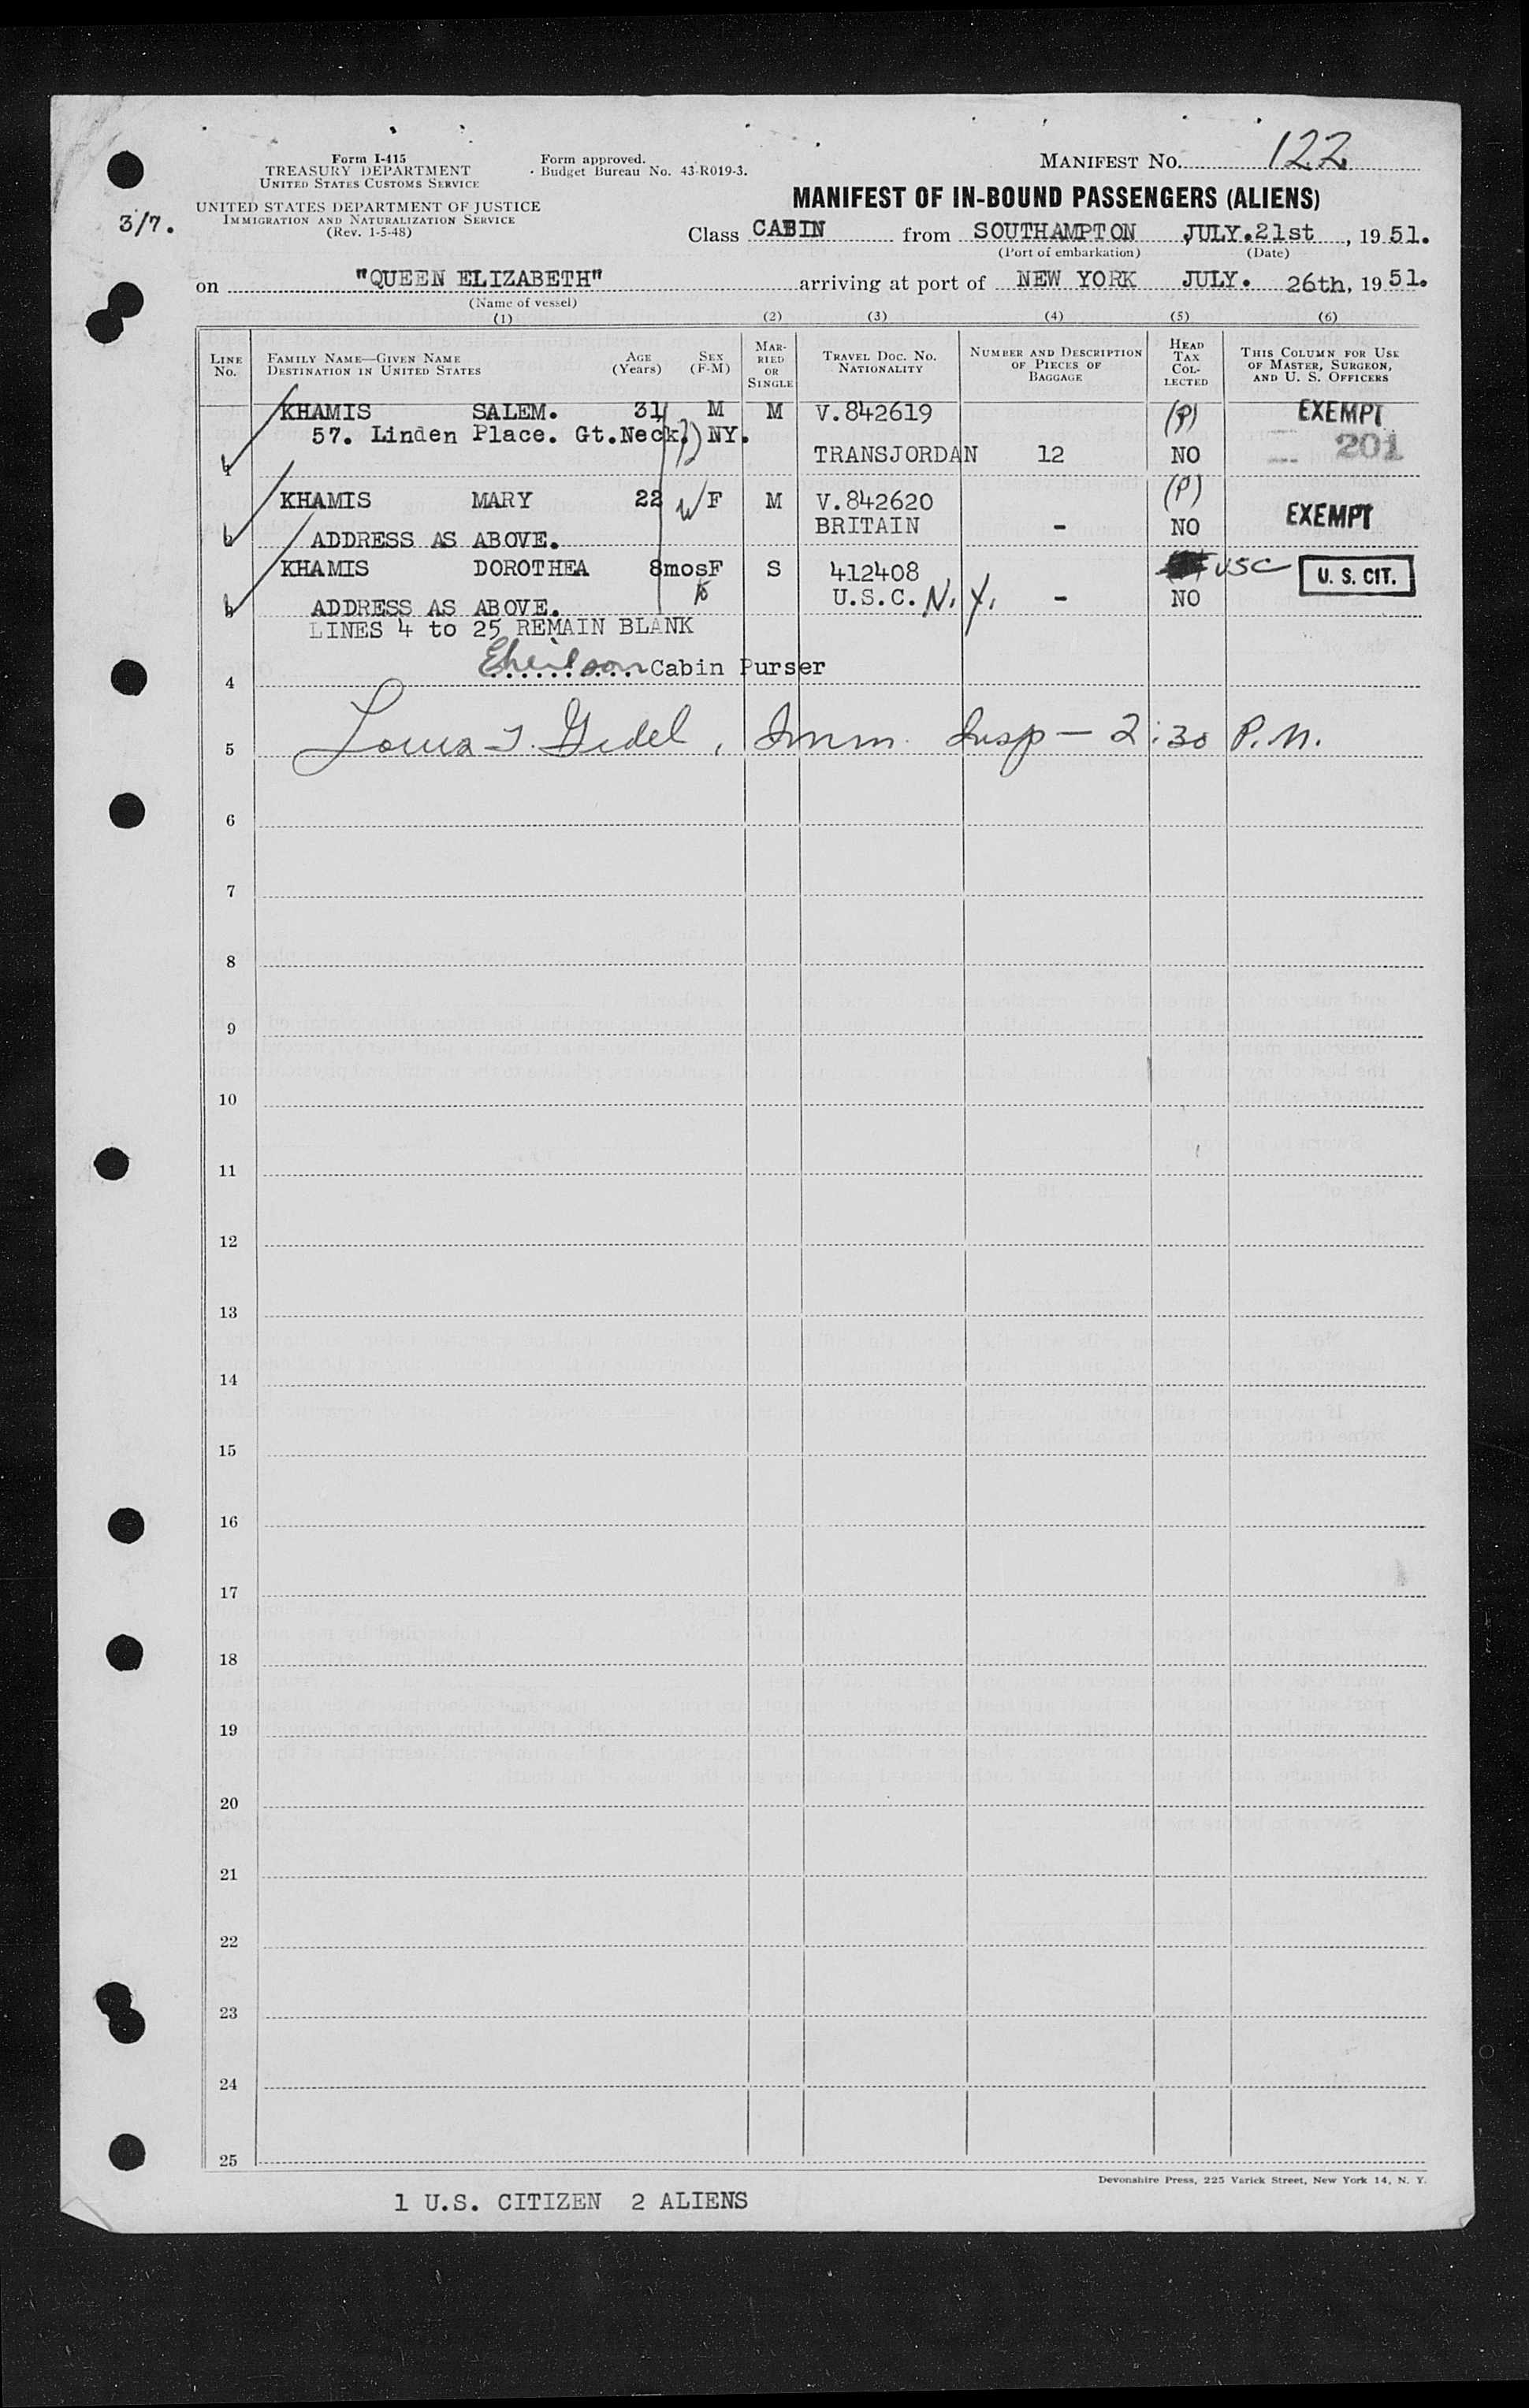 Form I-415
TREASURY DEPARTMENT
UNITED STATES CUSTOMS SERVICE
UNITED STATES DEPARTMENT OF JUSTICE
IMMIGRATION AND NATURALIZATION SERVICE
(Rev. 1-5-48)
3/7.
Form approved.
Budget Bureau No. 43-R019-3.
MANIFEST NO. 122
MANIFEST OF IN-BOUND PASSENGERS (ALIENS)
Class CABIN from SOUTHAMPTON JULY.21st, 1951.
(Port of embarkation) (Date)
on "QUEEN ELIZABETH" arriving at port of NEW YORK JULY. 26th, 1951.
(Name of vessel)
(1) (2) (3) (4) (5) (6)
LINE NO. FAMILY NAME—GIVEN NAME DESTINATION IN UNITED STATES AGE (Years) SEX (F-M) MARRIED OR SINGLE TRAVEL DOC. NO. NATIONALITY NUMBER AND DESCRIPTION OF PIECES OF BAGGAGE HEAD TAX COLLECTED THIS COLUMN FOR USE OF MASTER, SURGEON, AND U. S. OFFICERS
KHAMIS SALEM. 31 M M V.842619 (P) EXEMPT
57. Linden Place. Gt.Neck. NY.
TRANSJORDAN 12 NO 201
KHAMIS MARY 22 W F M V.842620 (P)
BRITAIN - NO EXEMPT
ADDRESS AS ABOVE.
KHAMIS DOROTHEA 8mos F S 412408 USC U. S. CIT.
ADDRESS AS ABOVE. U.S.C. N.Y. - NO
LINES 4 to 25 REMAIN BLANK
Cabin Purser
4
5 Louis J. Gidel, Imm. Insp — 2:30 P.M.
6
7
8
9
10
11
12
13
14
15
16
17
18
19
20
21
22
23
24
25
Devonshire Press, 225 Varick Street, New York 14, N. Y.
1 U.S. CITIZEN 2 ALIENS